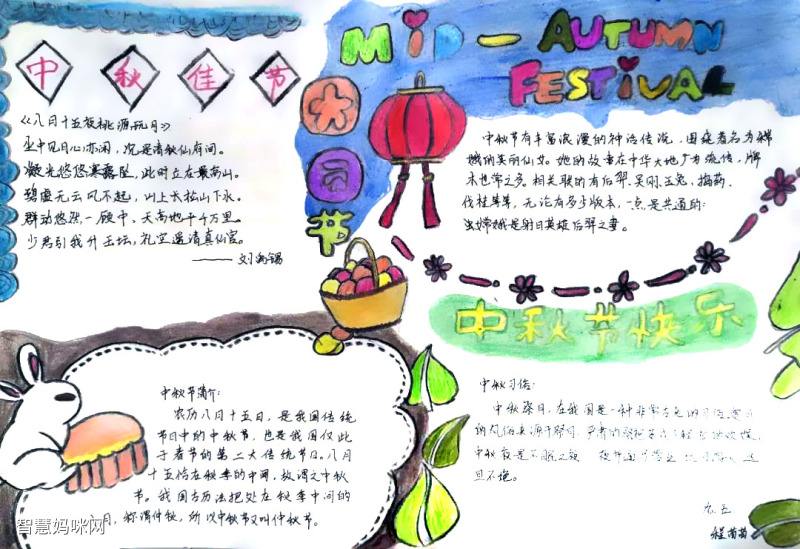 MiD - AUTUMN
FESTIVAL
中秋佳节
《八月十五夜桃源玩月》
尘中见月心亦闲，况是清秋仙府间。
凝光悠悠寒露坠，此时立在最高山。
碧虚无云风不起，山上长松山下水。
群动悠然一顾中，天高地平千万里。
少君引我升玉坛，礼空遥请真仙官。
——刘禹锡
团圆节
中秋节有丰富浪漫的神话传说，围绕着名为嫦
娥的美丽仙女。她的故事在中华大地广为流传，版
本也常之多。相关联的有后羿、吴刚、玉兔、捣药、
伐桂等等，无论有多少版本，一点是共通的：
嫦娥是射日英雄后羿之妻。
中秋节快乐
中秋节简介：
农历八月十五日，是我国传统
节日中的中秋节，也是我国仅次
于春节的第二大传统节日。八月
十五恰在秋季的中间，故谓之中秋
节。我国古历法把处在秋季中间的
八月，称谓仲秋，所以中秋节又叫仲秋节。
中秋习俗：
中秋祭月，在我国是一种非常古老的习俗
中秋夜是不眠之夜
且不绝。
六五
程茜茜
智慧妈咪网